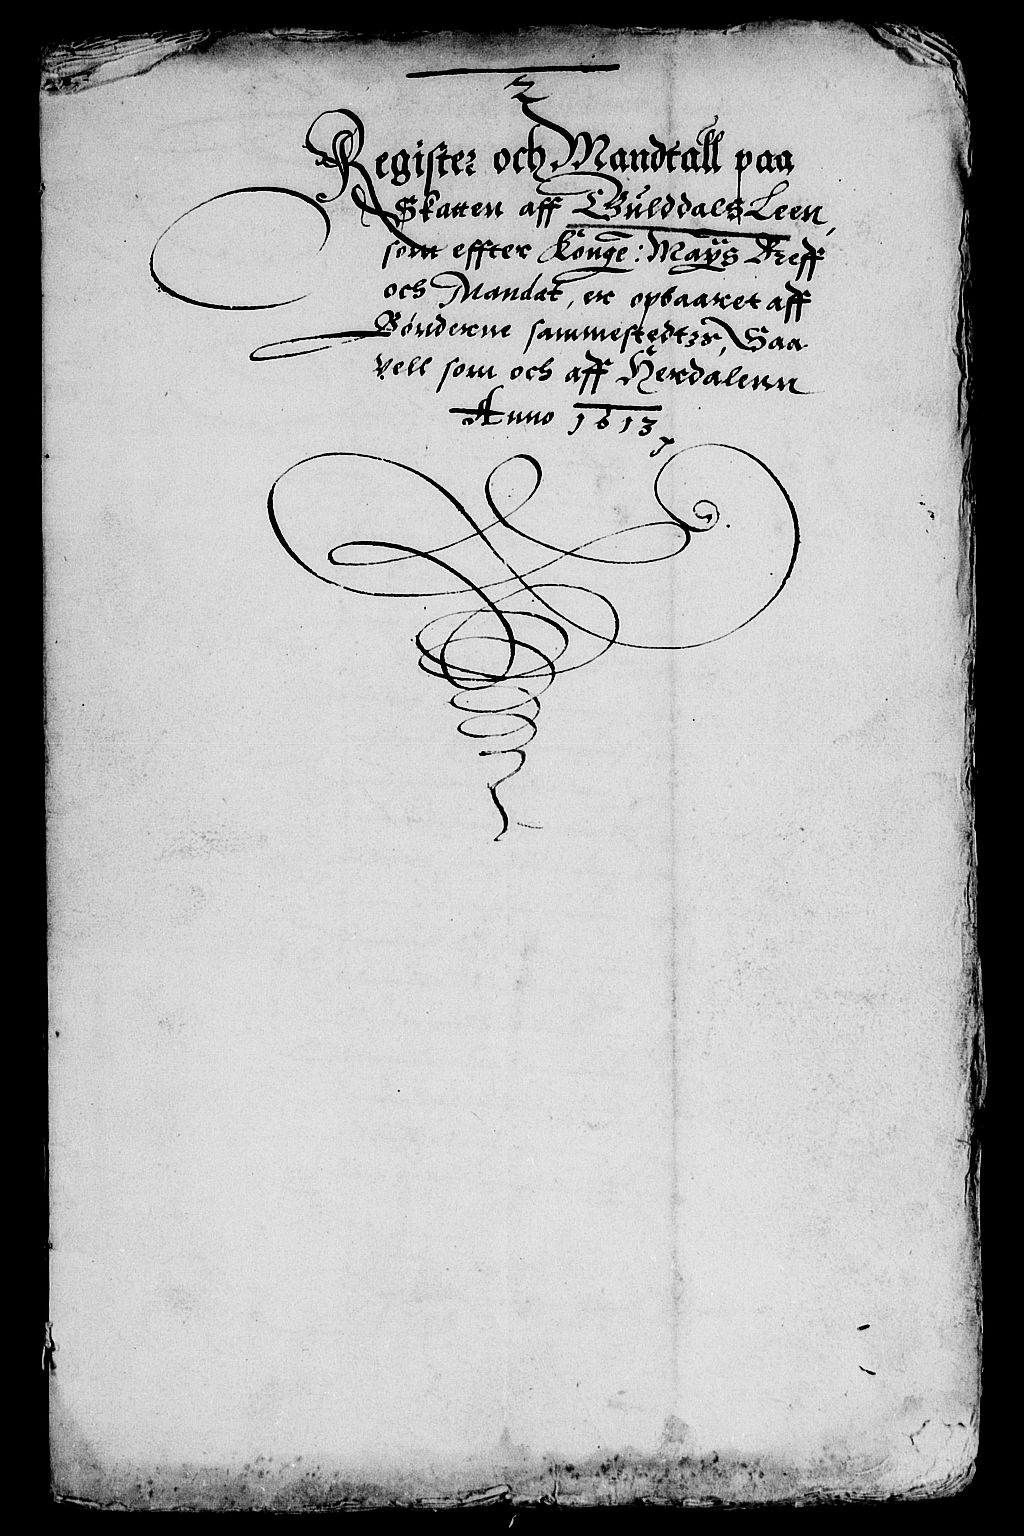 2
Register och Mandtall paa
Skatten aff Gulddals Leen,
som effter Konge: Mayts Breff
och Mandat, er opbaaret aff
Bønderne sammestedtzs, Saa
vell som och aff Herdalenn
Anno 1613